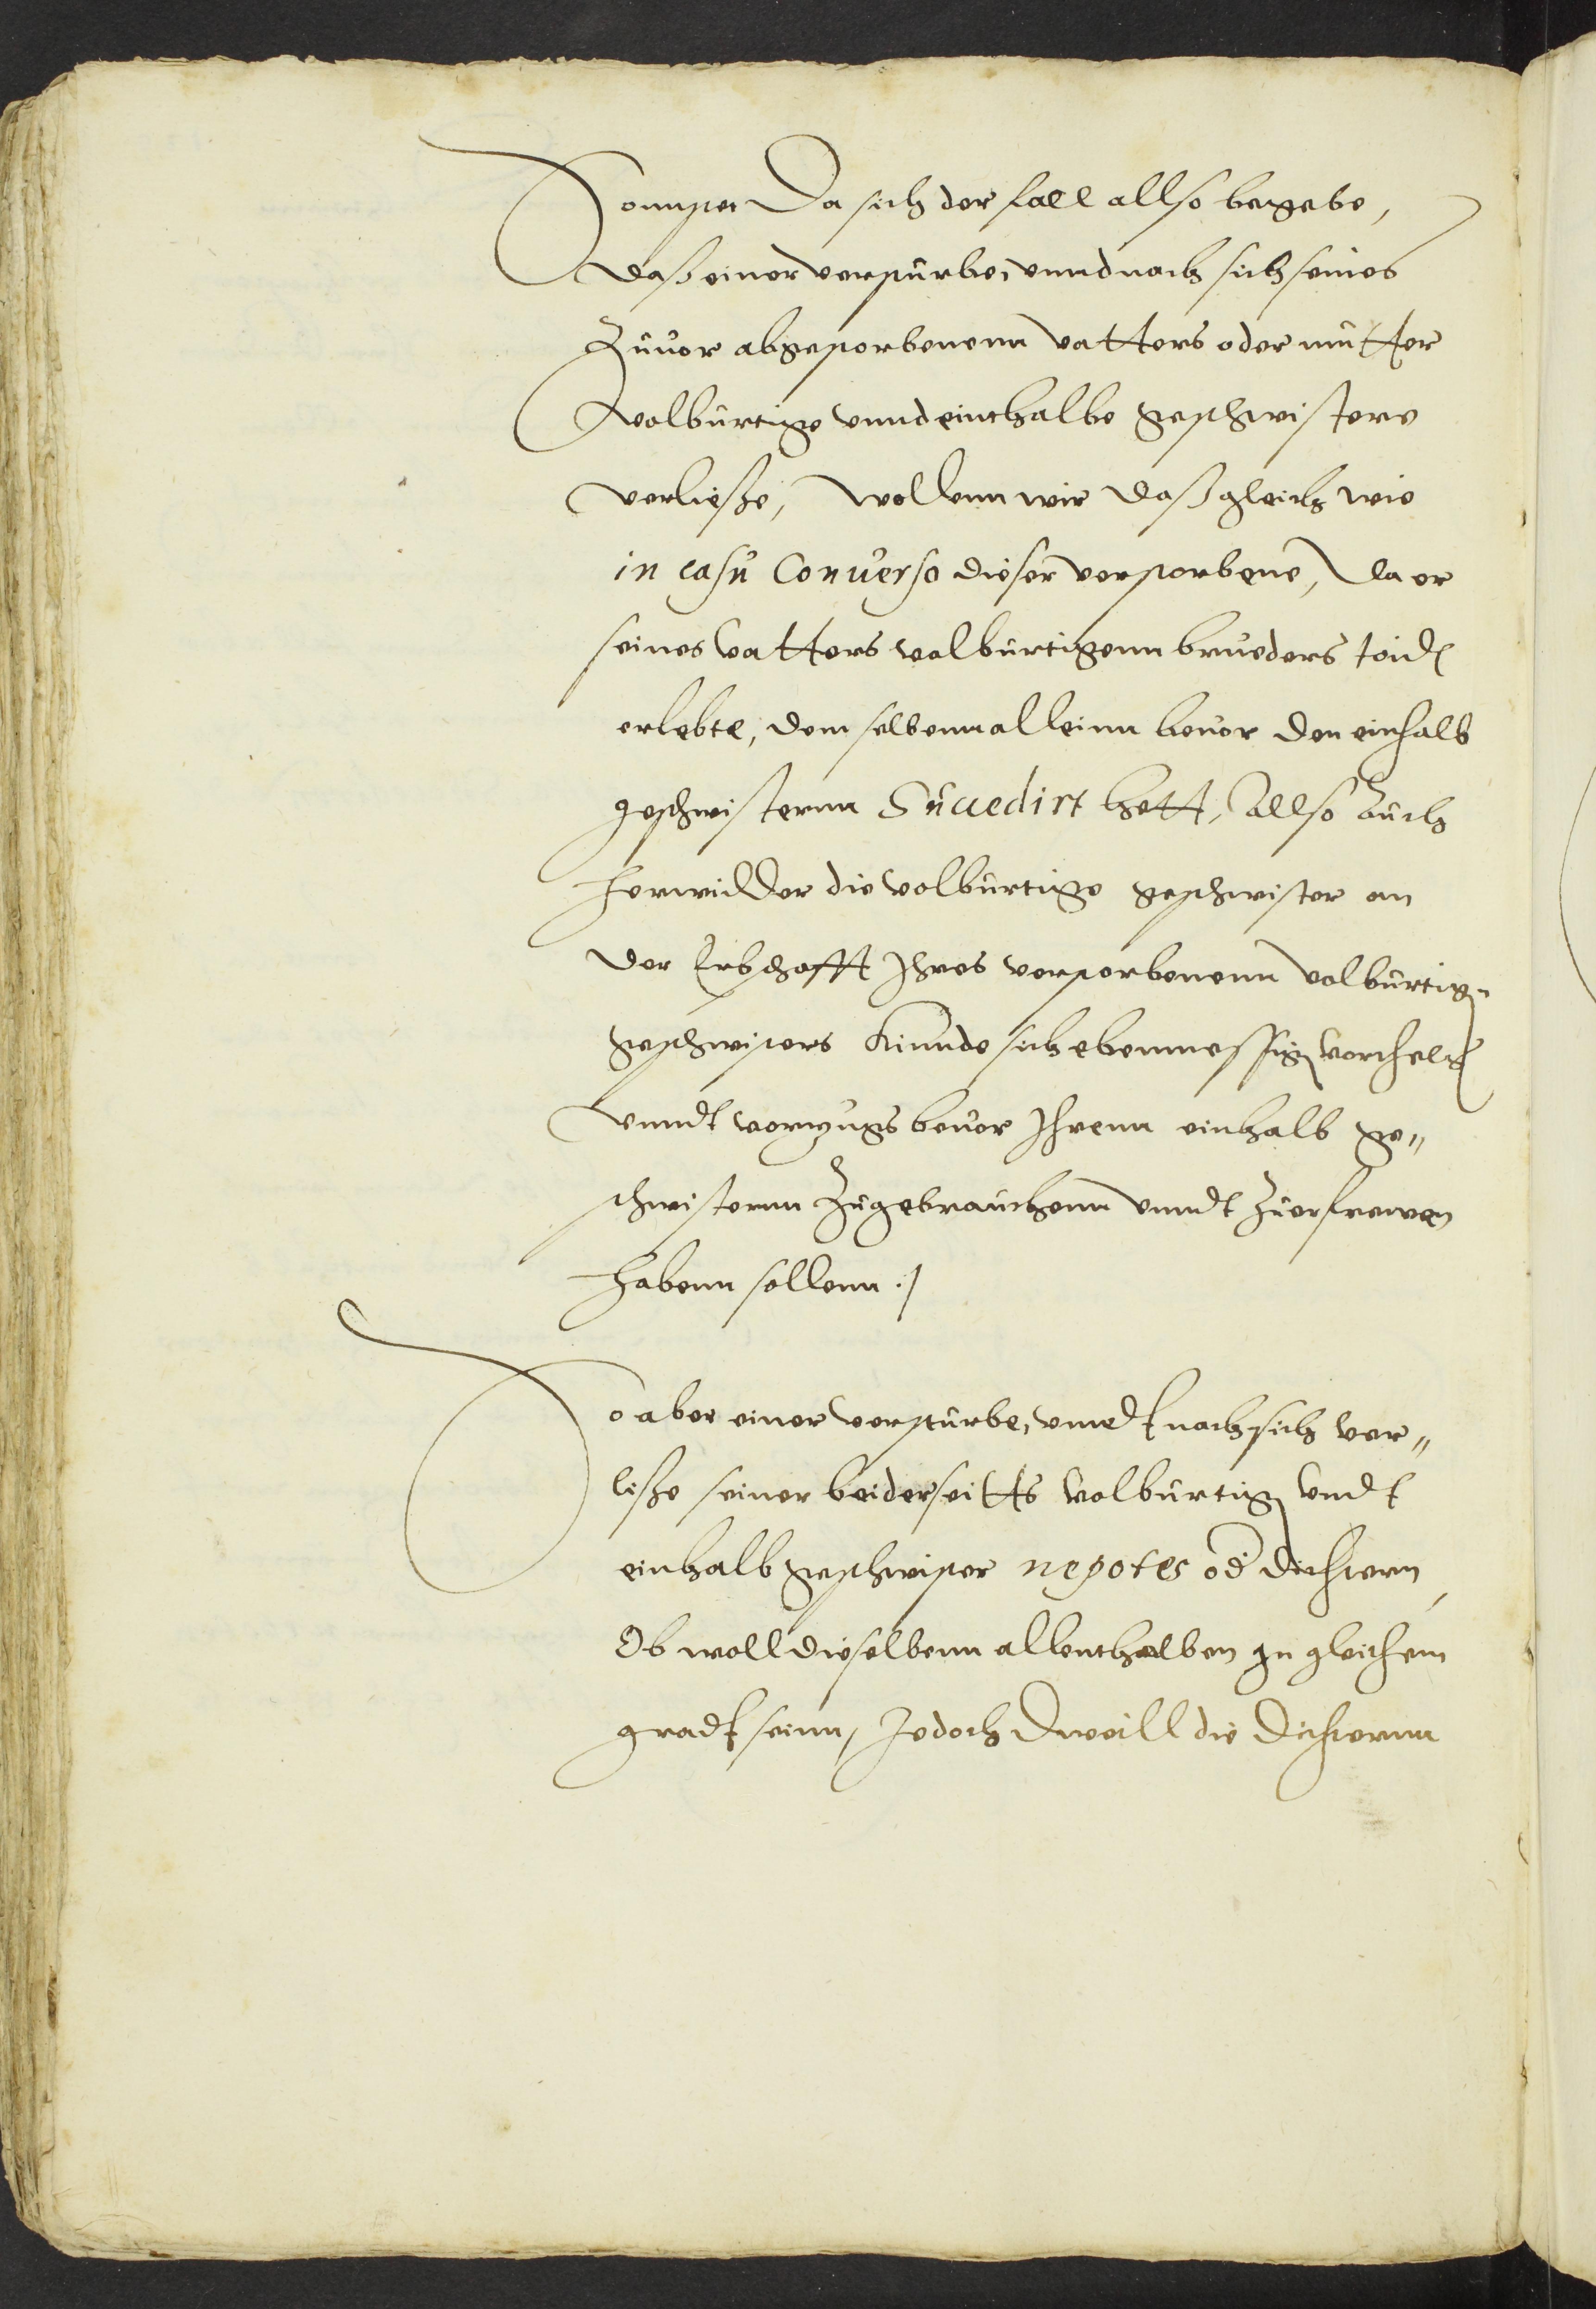 Sonnsten Da sich der fall allso begebe,
daß einer verstürbe, vnnd nach sich seines
Zuuor abgestorbenenn vatters oder mutter
volbürtige vnnd einthalbe geschwistere
verließe, wollenn wir daß gleich wie
in casu Conuerso dieser verstorbene, da er
seines Vatters volbürtigenn brueders toidt
erlebte, demselbenn alleinn beuor den einhalb
geschwisternn Succedirt hett, Allso auch
herwidder die volbürtige geschwister an
der Erbschafft Ihres verstorbenenn volbürtigen
geschwisters Kinnde sich ebenmessigen vortheils
vnndt vorzugs beuor Ihrenn einhalb ge„
schwisternn Zugebrauchenn vnndt Zuerfrewen
habenn sollenn ./
So aber einer verstürbe, vnndt nach sich ver„
ließe seiner beiderseitts volbürtigen vndt
einhalb geschwister nepotes od dichtern,
Ob woll dieselbenn allenthalben In gleichem
gradt seinn, Jedoch Dweill die Dichternn